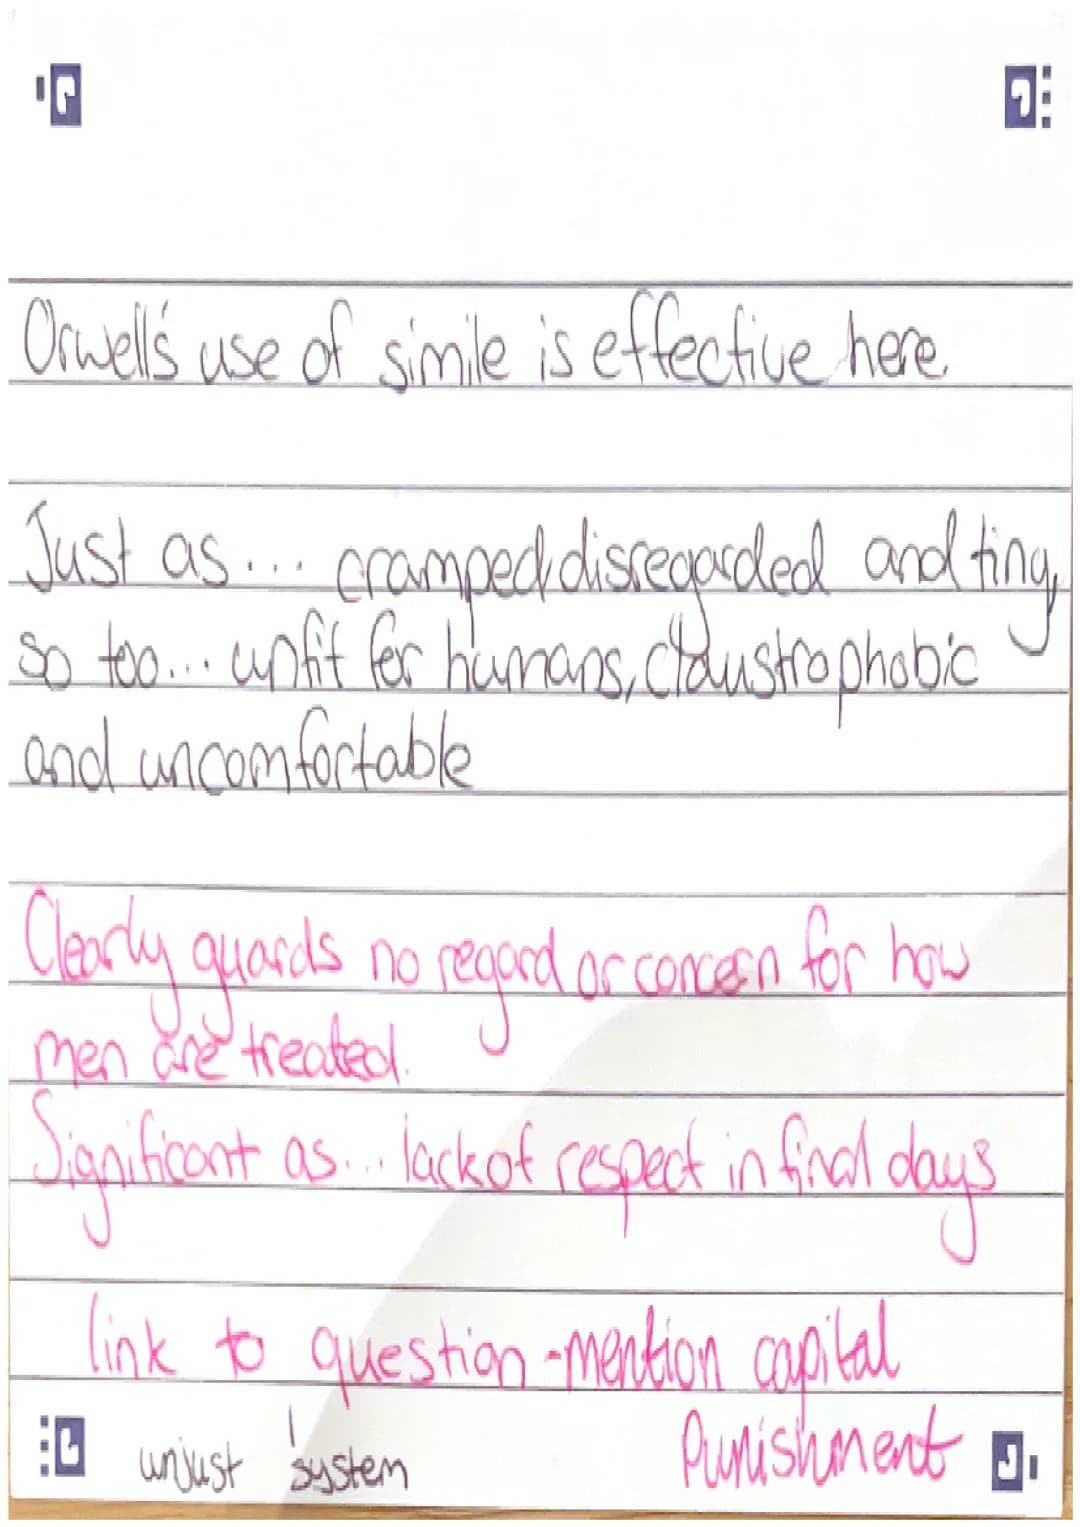 Orwell's use of simile is effective here.
Just as... cramped, disregarded and tiny,
so too... unfit for humans, claustrophobic
and uncomfortable
Clearly guards no regard or concern for how
men are treated.
Significant as... lack of respect in final days
link to question - mention capital
Punishment
unjust system